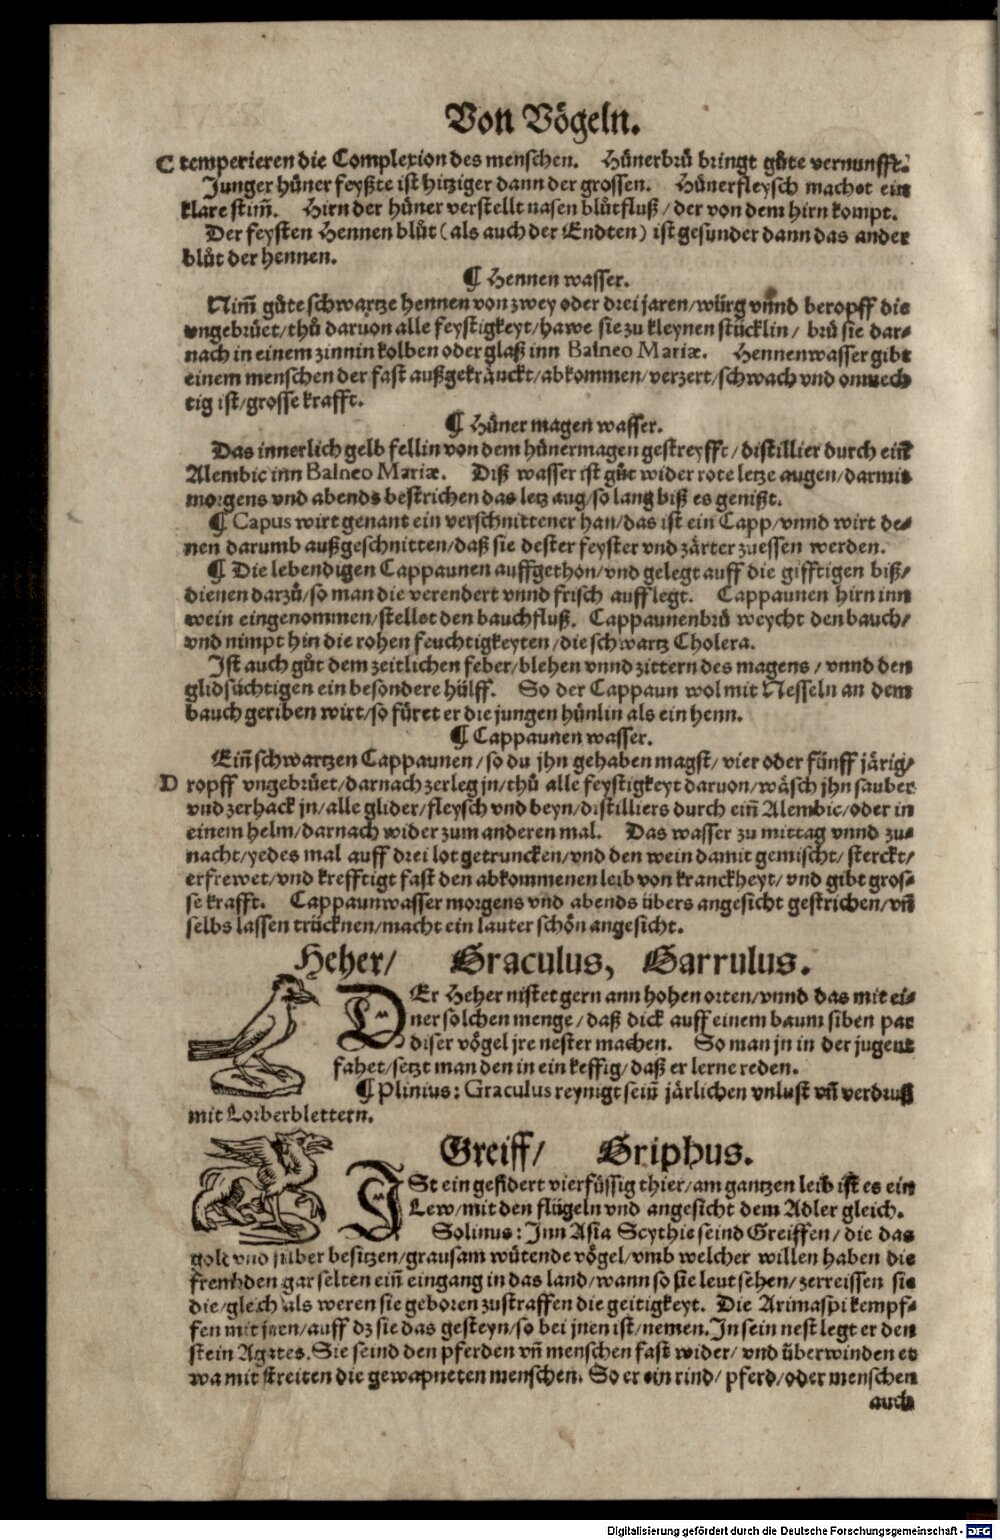 Von Vögeln.
C temperieren die Complexion des menschen. Hünerbrů bringt gůte vernunfft.
Junger hüner feyßte ist hitziger dann der grossen. Hünerfleysch machet ein
klare stim̃. Hirn der hüner verstellt nasen blůtfluß / der von dem hirn kompt.
Der feysten Hennen blůt (als auch der Endten) ist gesunder dann das ander
blůt der hennen.
¶ Hennen wasser.
Nim̃ gůte schwartze hennen von zwey oder drei jaren/würg vnnd beropff die
vngebrüet/thů daruon alle feystigkeyt/hawe sie zu kleynen stücklin / brů sie dar⸗
nach in einem zinnin kolben oder glaß inn Balneo Mariæ. Hennenwasser gibt
einem menschen der fast außgekränckt/abkommen/verzert/schwach vnd onmech
tig ist/grosse krafft.
¶ Hüner magen wasser.
Das innerlich gelb fellin von dem hünermagen gestreyfft/distillier durch ein̄
Alembic inn Balneo Mariæ. Diß wasser ist gůt wider rote letze augen/darmit
morgens vnd abends bestrichen das letz aug/so lang biß es genißt.
¶ Capus wirt genant ein verschnittener han/das ist ein Capp/vnnd wirt de⸗
nen darumb außgeschnitten/daß sie dester feyster vnd zärter zuessen werden.
¶ Die lebendigen Cappaunen auffgethon/vnd gelegt auff die gifftigen biß/
dienen darzů/so man die verendert vnnd frisch aufflegt. Cappaunen hirn inn
wein eingenommen/stellet den bauchfluß. Cappaunenbrů weycht den bauch/
vnd nimpt hin die rohen feuchtigkeyten/die schwartz Cholera.
Ist auch gůt dem zeitlichen feber/blehen vnnd zittern des magens / vnnd den
glidsüchtigen ein besondere hülff. So der Cappaun wol mit Nesseln an dem
bauch geriben wirt/so füret er die jungen hünlin als ein henn.
¶ Cappaunen wasser.
Ein̄ schwartzen Cappaunen/so du jhn gehaben magst/vier oder fünff järig/
D ropff vngebrüet/darnach zerleg jn/thů alle feystigkeyt daruon/wäsch jhn sauber
vnd zerhack jn/alle glider/fleysch vnd beyn/distilliers durch ein̄ Alembic/oder in
einem helm/darnach wider zum anderen mal. Das wasser zu mittag vnnd zu⸗
nacht/yedes mal auff drei lot getruncken/vnd den wein damit gemischt/sterckt/
erfrewet/vnd krefftigt fast den abkommenen leib von kranckheyt/vnd gibt gros⸗
se krafft. Cappaunwasser morgens vnd abends übers angesicht gestrichen/vn̄
selbs lassen trücknen/macht ein lauter schön angesicht.
Heher/ Graculus, Garrulus.
DEr Heher nistet gern ann hohen orten/vnnd das mit ei⸗
ner solchen menge/daß dick auff einem baum siben par
diser vögel jre nester machen. So man jn in der jugent
fahet/setzt man den in ein keffig/daß er lerne reden.
¶ Plinius: Graculus reynigt sein̄ järlichen vnlust vn̄ verdruß
mit Lorberblettern.
Greiff/ Griphus.
ISt ein gefidert vierfüssig thier/am gantzen leib ist es ein
Lew/mit den flügeln vnd angesicht dem Adler gleich.
Solinus: Inn Asia Scythie seind Greiffen/die das
gold vnd silber besitzen/grausam wütende vögel/vmb welcher willen haben die
frembden gar selten ein̄ eingang in das land/wann so sie leut sehen/zerreissen sie
die/gleich als weren sie geboren zustraffen die geitigkeyt. Die Arimaspi kempf⸗
fen mit jnen/auff dz sie das gesteyn/so bei jnen ist/nemen. In sein nest legt er den
stein Agates. Sie seind den pferden vn̄ menschen fast wider/vnd überwinden et
wa mit streiten die gewapneten menschen. So er ein rind/pferd/oder menschen
auch
Digitalisierung gefördert durch die Deutsche Forschungsgemeinschaft - DFG